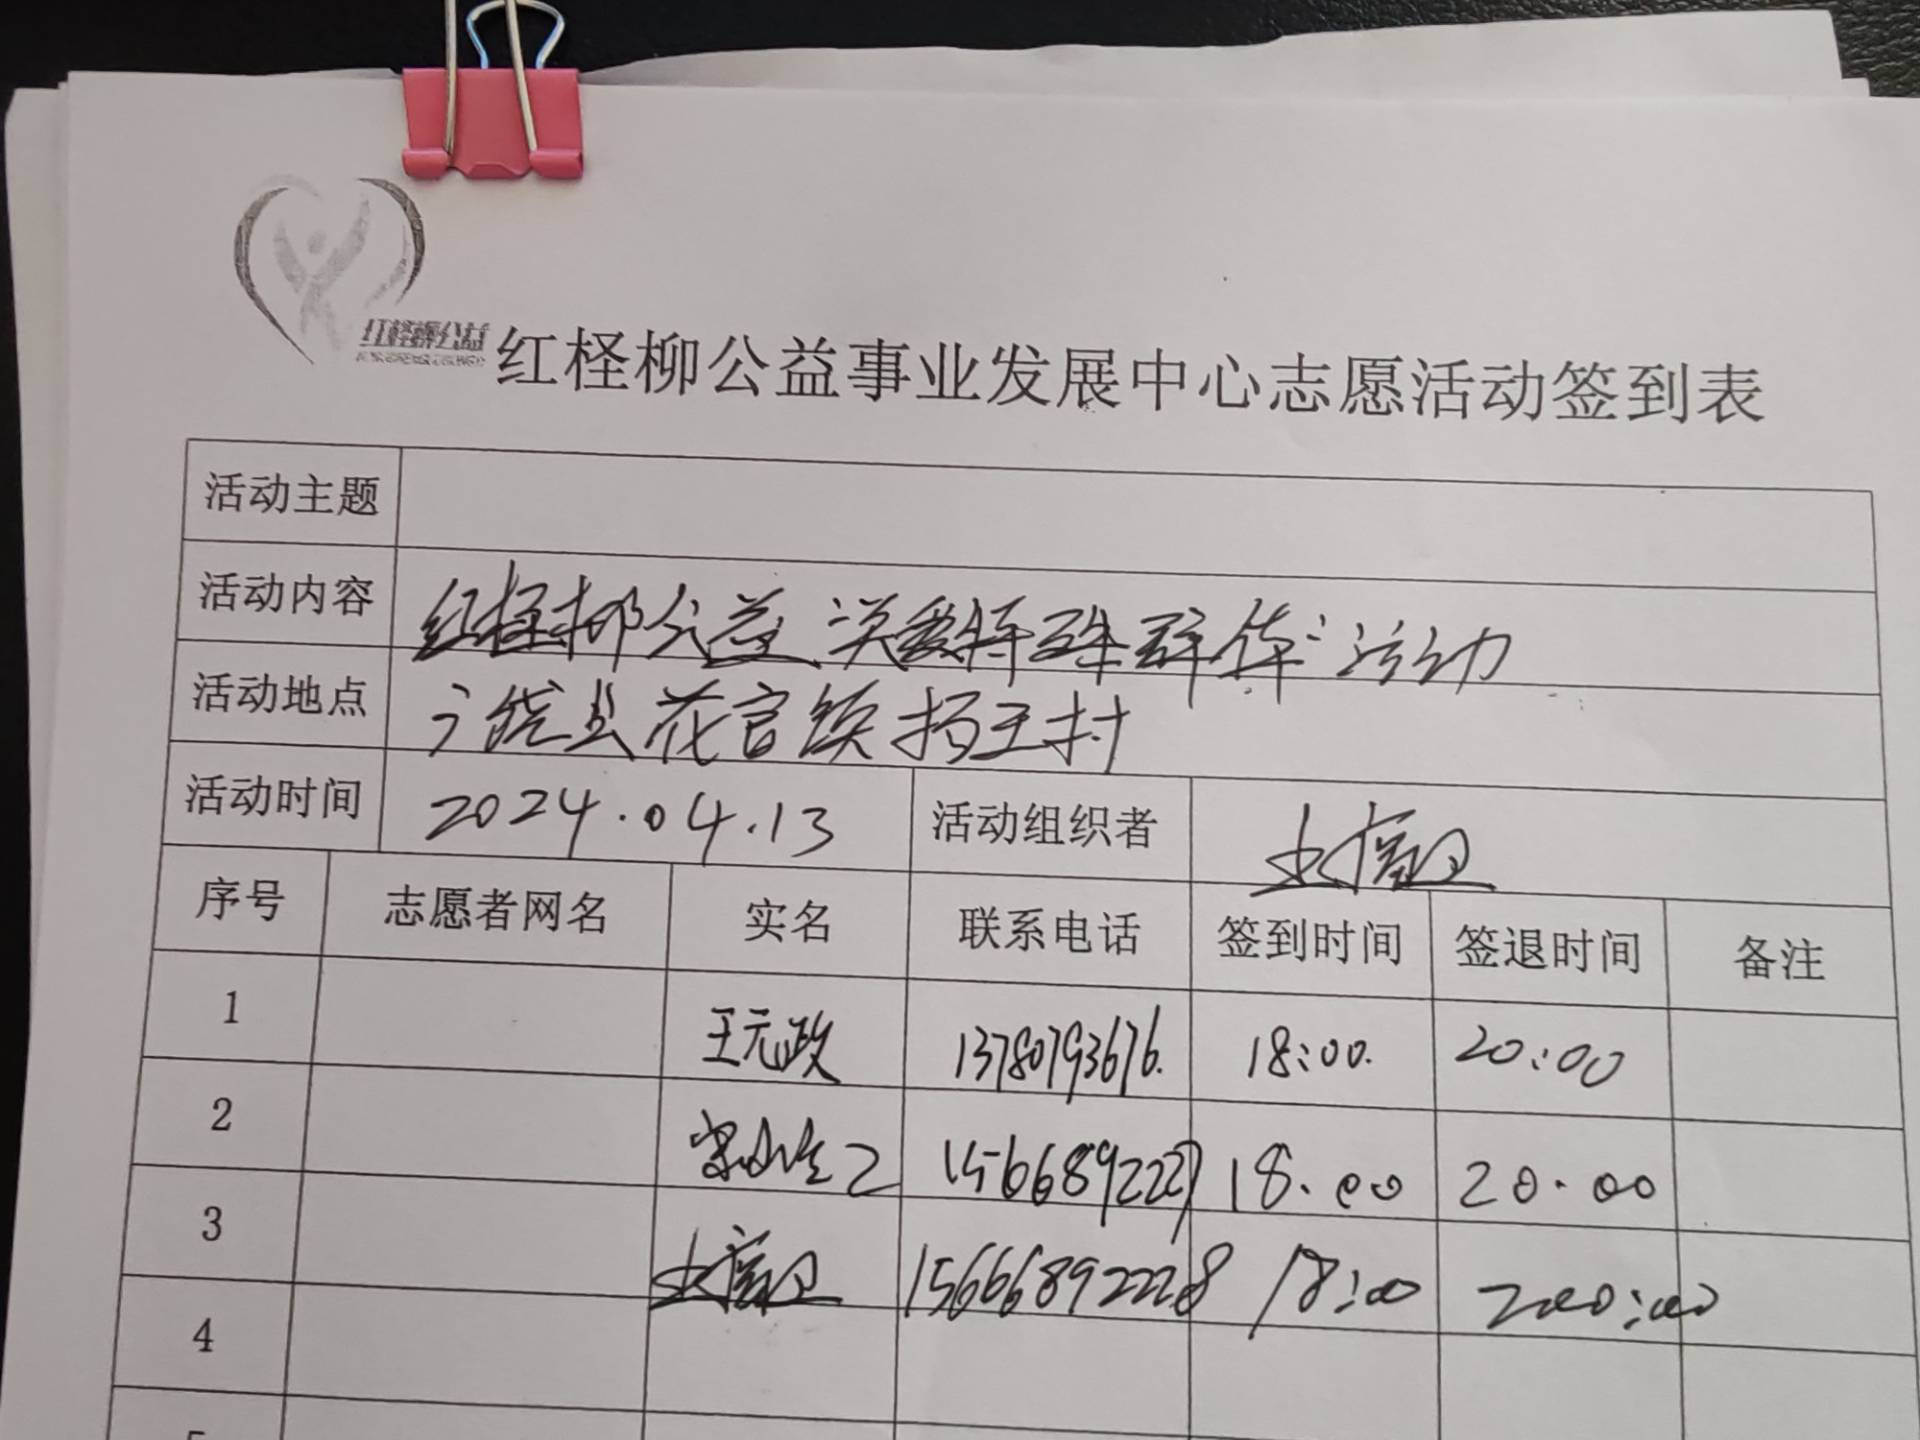 红柽柳公益
红柽柳公益事业发展中心志愿活动签到表
活动主题
活动内容 红柽柳公益 关爱特殊群体"活动
活动地点 广饶县花官镇杨王村
活动时间 2024.04.13 活动组织者
序号 志愿者网名 实名 联系电话 签到时间 签退时间 备注
1 王元政 13780793676. 18:00. 20:00
2 1566892227 18.00 20.00
3 15666892228 18:00
4
5